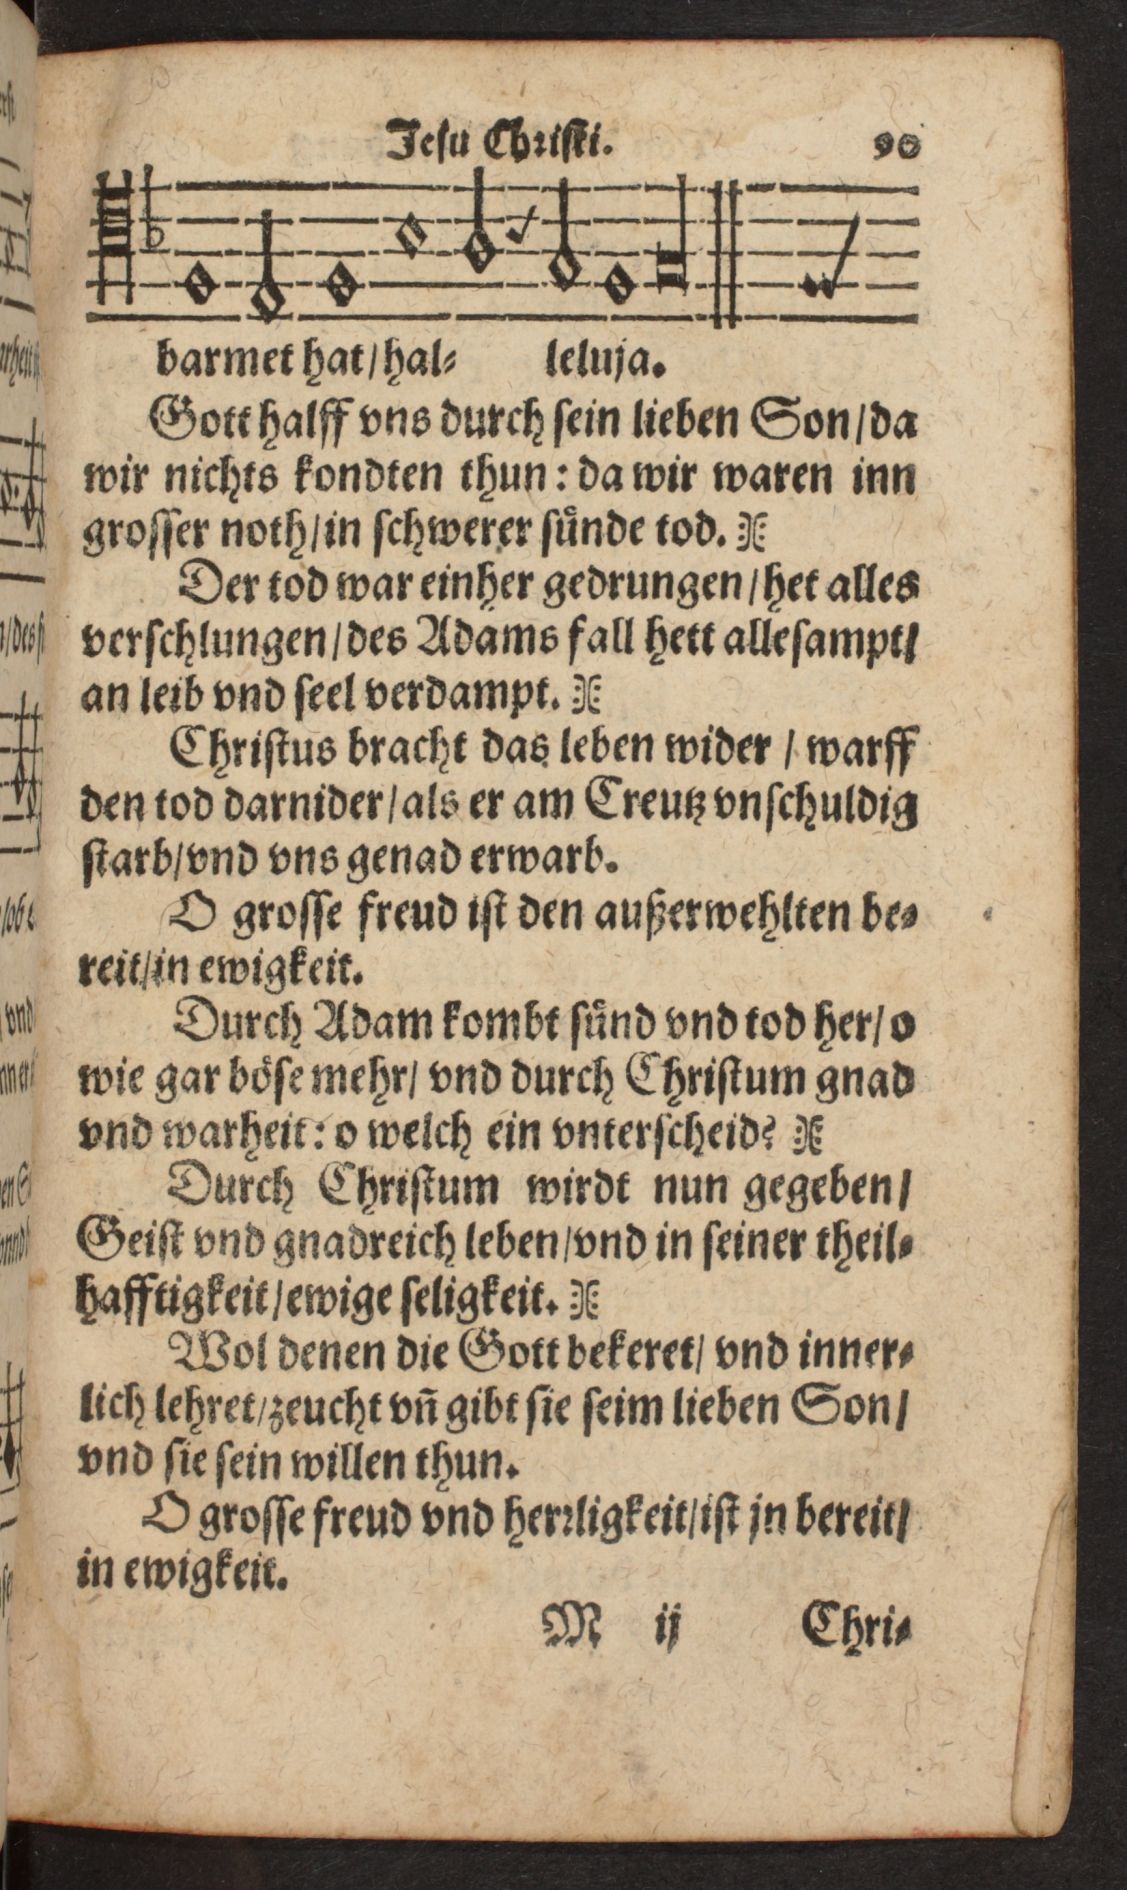 Jesu Christi. 90
barmet hat/hal⸗ leluja.
Gott halff vns durch sein lieben Son/da
wir nichts kondten thun: da wir waren inn
grosser noth/in schwerer sünde tod.
Der tod war einher gedrungen/het alles
verschlungen/des Adams fall hett allesampt/
an leib vnd seel verdampt.
Christus bracht das leben wider / warff
den tod darnider/als er am Creutz vnschuldig
starb/vnd vns genad erwarb.
O grosse freud ist den außerwehlten be⸗
reit/in ewigkeit.
Durch Adam kombt sünd vnd tod her/o
wie gar böse mehr/ vnd durch Christum gnad
vnd warheit: o welch ein vnterscheid?
Durch Christum wirdt nun gegeben/
Geist vnd gnadreich leben/vnd in seiner theil⸗
hafftigkeit/ewige seligkeit.
Wol denen die Gott bekeret/ vnd inner⸗
lich lehret/zeucht vn̄ gibt sie seim lieben Son/
vnd sie sein willen thun.
O grosse freud vnd herrligkeit/ist jn bereit/
in ewigkeit.
M ij Chri⸗